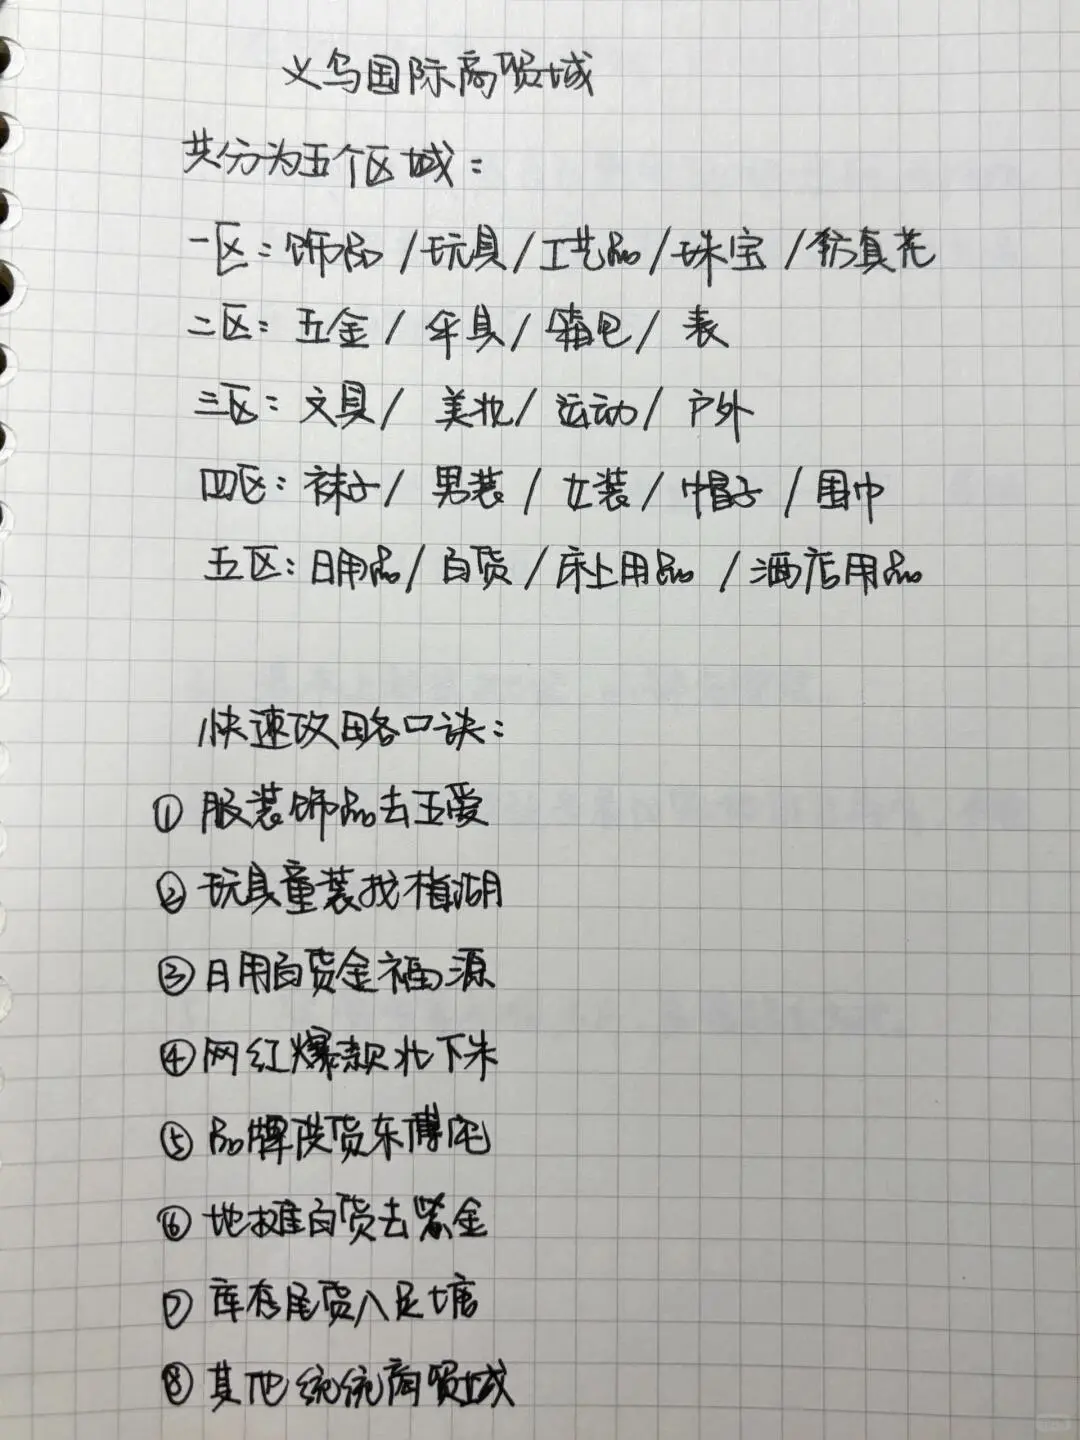 义乌国际商贸城
共分为五个区域：
一区：饰品/玩具/工艺品/珠宝/仿真花
二区：五金/伞具/箱包/表
三区：文具/美妆/运动/户外
四区：袜子/男装/女装/帽子/围巾
五区：日用品/百货/床上用品/酒店用品
快速攻略口诀：
① 服装饰品去五爱
② 玩具童装找梅湖
③ 日用百货金福源
④ 网红爆款北下朱
⑤ 品牌供货东傅宅
⑥ 地摊百货去紫金
⑦ 库存尾货八足塘
⑧ 其他统统商贸城